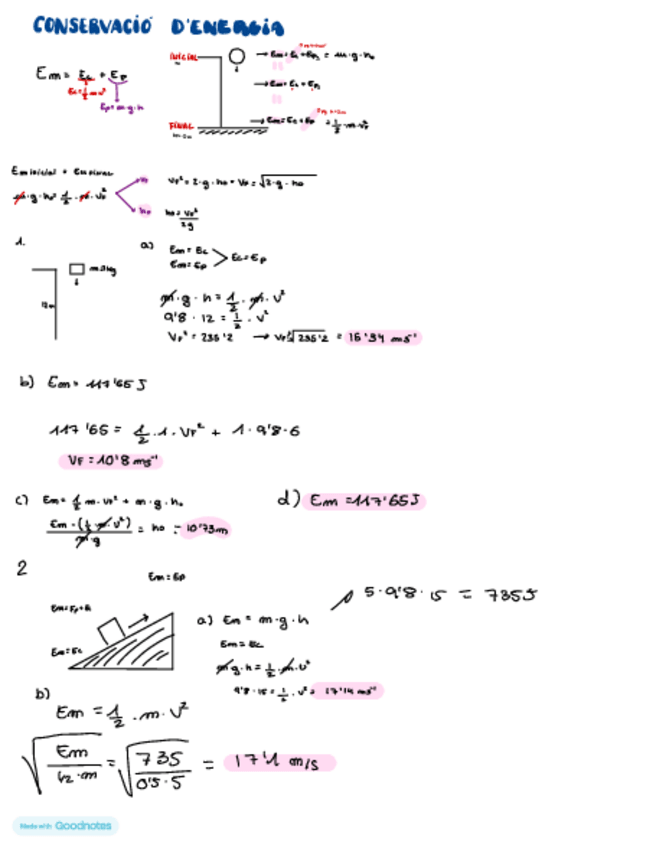 CONSERVACIÓ D'ENERGIA
INICIAL → Em = Ec + Ep = m·g·h₀
Em = Ec + Ep
Ec = ½ mv²
Ep = m·g·h
→ Em = Ec + Ep
FINAL → Em = Ec + Ep = ½·m·v_F²
Em inicial = Em final
m·g·h₀ = ½·m·v_F²
v_F² = 2·g·h₀ → v_F = √2·g·h₀
h₀ = v_F²/2g
1.
12m
a) Em = Ec
Em = Ep
Ec = Ep
m·g·h = ½·m·v²
9'8·12 = ½·v²
v_F² = 235'2 → v_F = √235'2 = 15'34 ms⁻¹
b) Em = 117'65 J
117'65 = ½·1·v_F² + 1·9'8·6
v_F = 10'8 ms⁻¹
c) Em = ½ m·v_F² + m·g·h₀
Em - (½·m·v²)/m·g = h₀ = 10'73m
d) Em = 117'65 J
2
Em = Ep
Em = Ec
a) Em = m·g·h
5·9'8·15 = 735 J
Em = Ec
m·g·h = ½·m·v²
9'8·15 = ½·v² = 17'14 ms⁻¹
b)
Em = ½·m·v²
√Em/½·m = √735/0'5·5 = 17'1 m/s
Made with Goodnotes